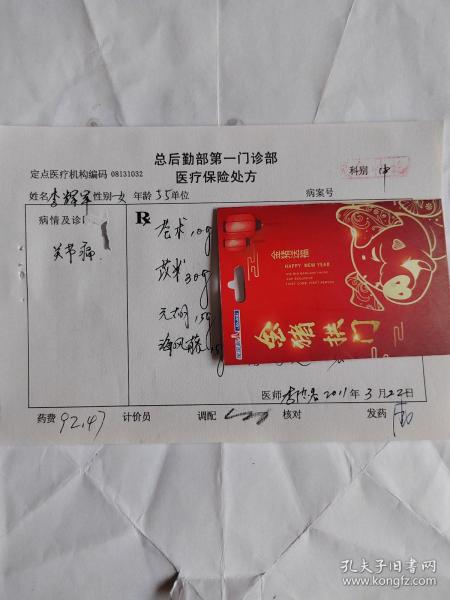 总后勤部第一门诊部
定点医疗机构编码 08131032
医疗保险处方
科别 中
姓名 李辉军 性别 女 年龄 55 单位 病案号
病情及诊
关节痛
R
苍术 10g
苡米 30g
元胡 15g
海风藤
金猪送福
HAPPY NEW YEAR
金猪拱门
医师 2011年3月22日
药费 92.47 计价员 调配 核对 发药
孔夫子旧书网
www.kongfz.com